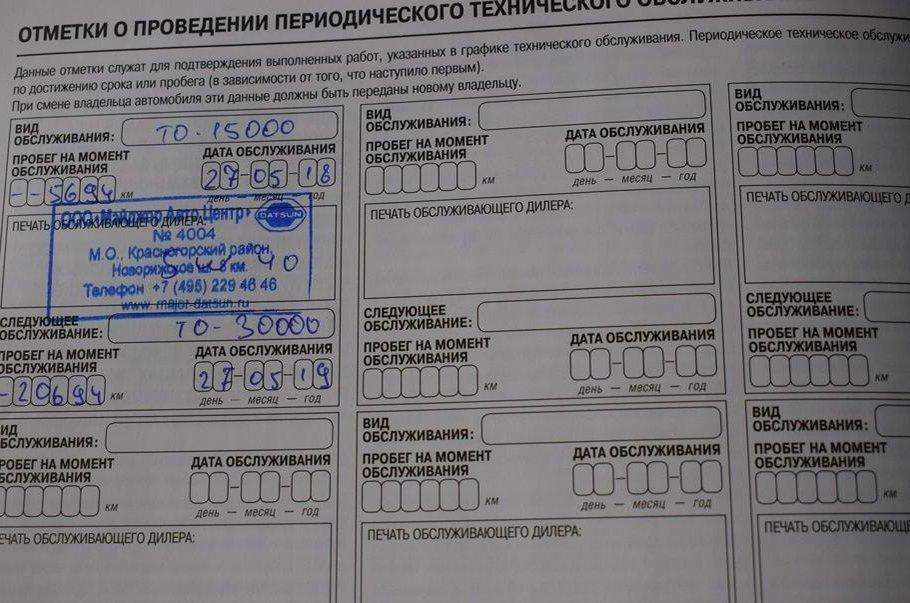 ОТМЕТКИ О ПРОВЕДЕНИИ ПЕРИОДИЧЕСКОГО ТЕХНИЧЕСКОГО
Данные отметки служат для подтверждения выполненных работ, указанных в графике технического обслуживания. Периодическое техническое обслужи
по достижению срока или пробега (в зависимости от того, что наступило первым).
При смене владельца автомобиля эти данные должны быть переданы новому владельцу.
ВИД
ОБСЛУЖИВАНИЯ: ТО-15000
ПРОБЕГ НА МОМЕНТ
ОБСЛУЖИВАНИЯ
--5694 км
ДАТА ОБСЛУЖИВАНИЯ
27-05-18
день — месяц — год
ПЕЧАТЬ ОБСЛУЖИВАЮЩЕГО ДИЛЕРА:
ООО «Мэйджор Авто Центр» DATSUN
№ 4004
М.О., Красногорский район,
Новорижское ш. 8 км.
Телефон +7 (495) 229 46 46
www.major-datsun.ru
СЛЕДУЮЩЕЕ
ОБСЛУЖИВАНИЕ: ТО-30000
ПРОБЕГ НА МОМЕНТ
ОБСЛУЖИВАНИЯ
-20694 км
ДАТА ОБСЛУЖИВАНИЯ
27-05-19
день — месяц — год
ВИД
ОБСЛУЖИВАНИЯ:
ПРОБЕГ НА МОМЕНТ
ОБСЛУЖИВАНИЯ
км
ДАТА ОБСЛУЖИВАНИЯ
день — месяц — год
ПЕЧАТЬ ОБСЛУЖИВАЮЩЕГО ДИЛЕРА:
ВИД
ОБСЛУЖИВАНИЯ:
ПРОБЕГ НА МОМЕНТ
ОБСЛУЖИВАНИЯ
км
ДАТА ОБСЛУЖИВАНИЯ
день — месяц — год
ПЕЧАТЬ ОБСЛУЖИВАЮЩЕГО ДИЛЕРА:
СЛЕДУЮЩЕЕ
ОБСЛУЖИВАНИЕ:
ПРОБЕГ НА МОМЕНТ
ОБСЛУЖИВАНИЯ
км
ДАТА ОБСЛУЖИВАНИЯ
день — месяц — год
ВИД
ОБСЛУЖИВАНИЯ:
ПРОБЕГ НА МОМЕНТ
ОБСЛУЖИВАНИЯ
км
ДАТА ОБСЛУЖИВАНИЯ
день — месяц — год
ПЕЧАТЬ ОБСЛУЖИВАЮЩЕГО ДИЛЕРА:
ВИД
ОБСЛУЖИВАНИЯ:
ПРОБЕГ НА МОМЕНТ
ОБСЛУЖИВАНИЯ
км
ПЕЧАТЬ ОБСЛУЖИВАЮЩЕГО Д
СЛЕДУЮЩЕЕ
ОБСЛУЖИВАНИЕ:
ПРОБЕГ НА МОМЕНТ
ОБСЛУЖИВАНИЯ
км
ВИД
ОБСЛУЖИВАНИЯ:
ПРОБЕГ НА МОМЕНТ
ОБСЛУЖИВАНИЯ
км
ПЕЧАТЬ ОБСЛУЖИВАЮЩЕ